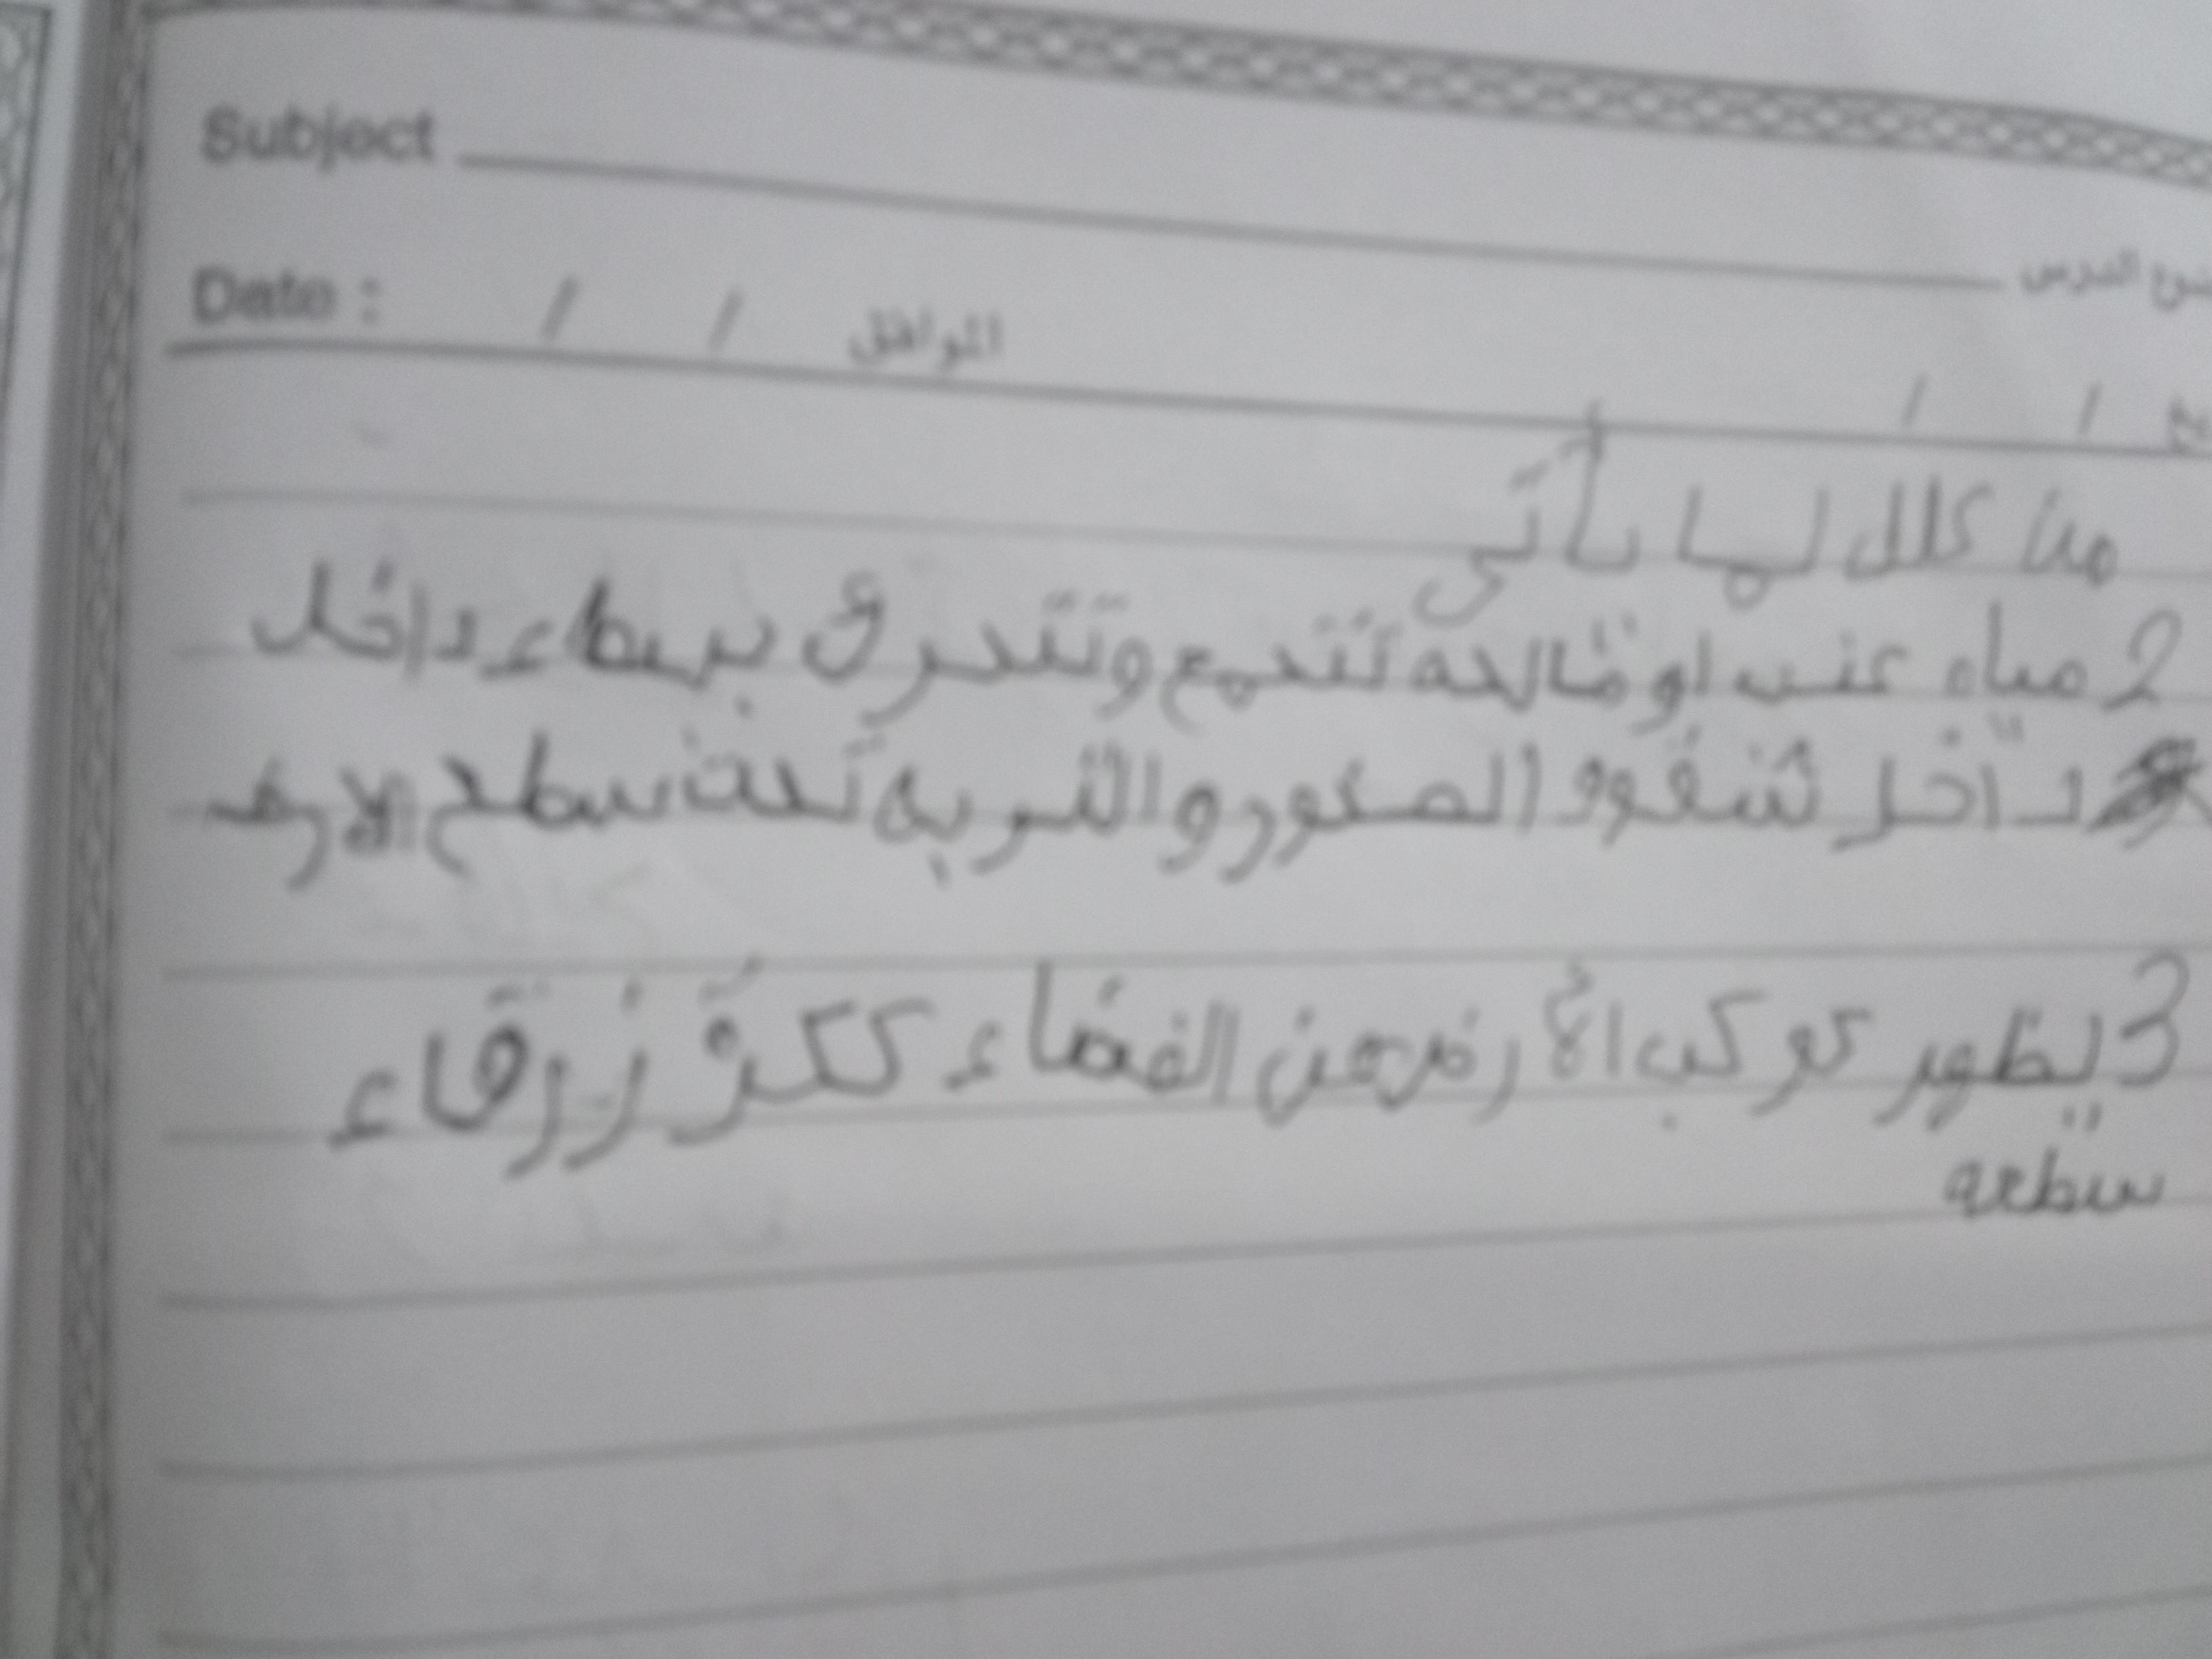 Subject
الدرس
Date : / / الموافق
/ /
من كلل لما يأتى
2 مياه عذب او مالحه تتجمع وتتحرك ببطاء داخل
داخل شقوق الصخور والتربه تحت سطح الارض
3 يظهر كوكب الأرض من الفضاء ككرة زرقاء
سطعه